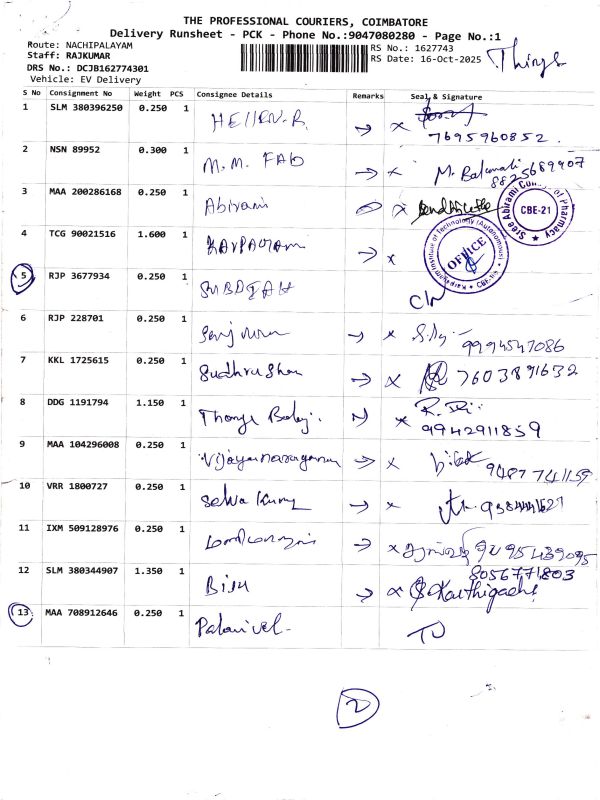 THE PROFESSIONAL COURIERS, COIMBATORE
Delivery Runsheet - PCK - Phone No.:9047080280 - Page No.:1
Route: NACHIPALAYAM
Staff: RAJKUMAR
DRS No.: DCJB162774301
Vehicle: EV Delivery
RS No.: 1627743
RS Date: 16-Oct-2025
S No Consignment No Weight PCS Consignee Details Remarks Seal & Signature
1 SLM 380396250 0.250 1 HELLEN.R. x
7695960852.
2 NSN 89952 0.300 1 M.M. FAB x M. Balamali
8825689907
3 MAA 200286168 0.250 1 Abirami x
Sree Abirami College of Pharmacy CBE-21
4 TCG 90021516 1.600 1 KARPAGAM x
Institute of Technology (Autonomous) OFFICE
5 RJP 3677934 0.250 1 SUBBIAH
6 RJP 228701 0.250 1 x
9994547086
7 KKL 1725615 0.250 1 Sudhrushan x 7603891632
8 DDG 1191794 1.150 1 x
9942911859
9 MAA 104296008 0.250 1 Vijayanarayanan x
9487741159
10 VRR 1800727 0.250 1 Selva Kumar x
11 IXM 509128976 0.250 1 x
12 SLM 380344907 1.350 1 Biju x Karthigachi
8056771803
13 MAA 708912646 0.250 1 Palanivel-
2